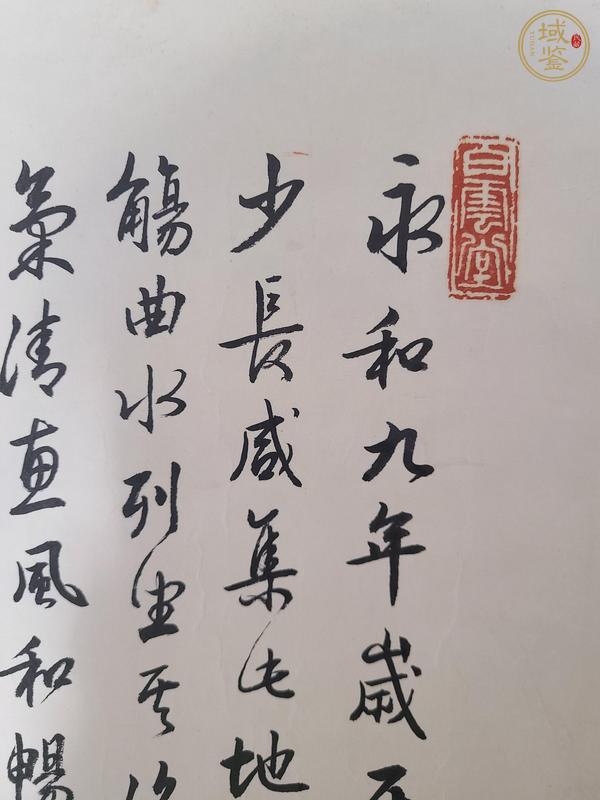 域鉴
YUJIAN
白雲堂
永和九年歲
少長咸集此地
觴曲水列坐其
氣清惠風和暢